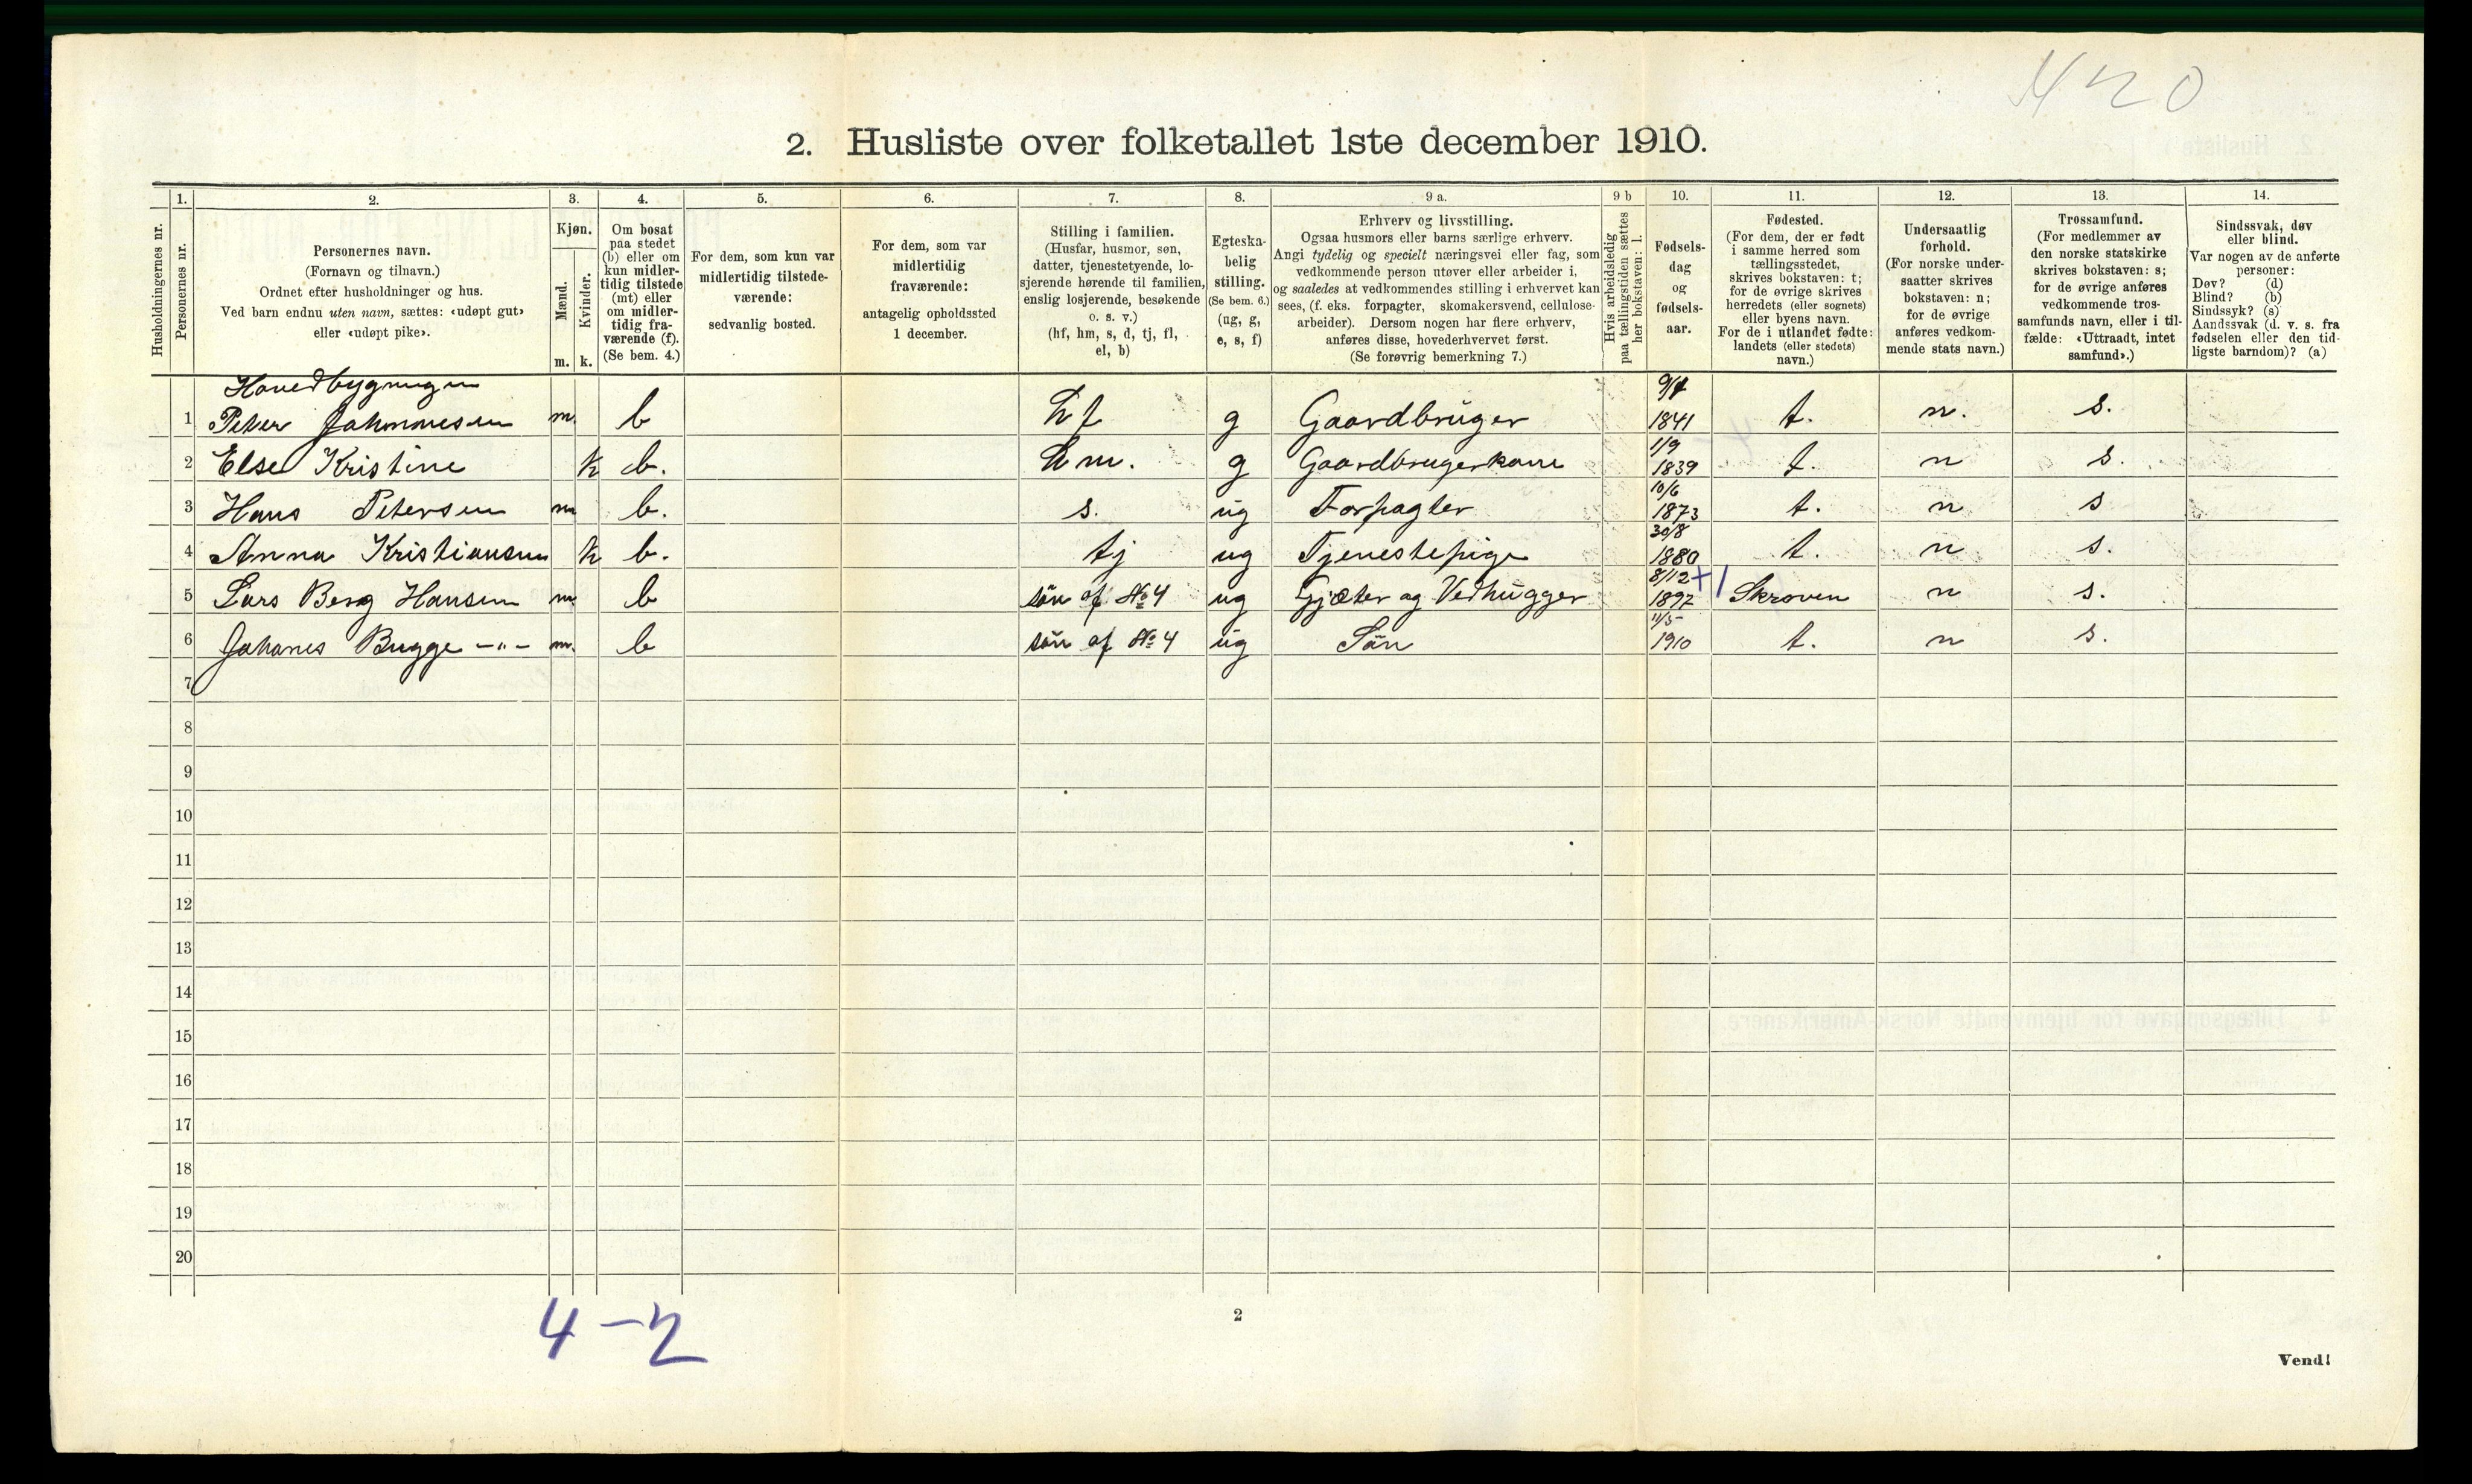 420
2. Husliste over folketallet 1ste december 1910.
1. 2. 3. 4. 5. 6. 7. 8. 9 a. 9 b 10. 11. 12. 13. 14.
Husholdningernes nr.
Personernes nr.
Personernes navn.
(Fornavn og tilnavn.)
Ordnet efter husholdninger og hus.
Ved barn endnu uten navn, sættes: «udøpt gut»
eller «udøpt pike».
Kjøn.
Mænd.
Kvinder.
m. k.
Om bosat
paa stedet
(b) eller om
kun midler-
tidig tilstede
(mt) eller
om midler-
tidig fra-
værende (f).
(Se bem. 4.)
For dem, som kun var
midlertidig tilstede-
værende:
sedvanlig bosted.
For dem, som var
midlertidig
fraværende:
antagelig opholdssted
1 december.
Stilling i familien.
(Husfar, husmor, søn,
datter, tjenestetyende, lo-
sjerende hørende til familien,
enslig losjerende, besøkende
o. s. v.)
(hf, hm, s, d, tj, fl,
el, b)
Egteska-
belig
stilling.
(Se bem. 6.)
(ug, g,
e, s, f)
Erhverv og livsstilling.
Ogsaa husmors eller barns særlige erhverv.
Angi tydelig og specielt næringsvei eller fag, som
vedkommende person utøver eller arbeider i,
og saaledes at vedkommendes stilling i erhvervet kan
sees, (f. eks. forpagter, skomakersvend, cellulose-
arbeider). Dersom nogen har flere erhverv,
anføres disse, hovederhvervet først.
(Se forøvrig bemerkning 7.)
Hvis arbeidsledig
paa tællingstiden sættes
her bokstaven: l.
Fødsels-
dag
og
fødsels-
aar.
Fødested.
(For dem, der er født
i samme herred som
tællingsstedet,
skrives bokstaven: t;
for de øvrige skrives
herredets (eller sognets)
eller byens navn.
For de i utlandet fødte:
landets (eller stedets)
navn.)
Undersaatlig
forhold.
(For norske under-
saatter skrives
bokstaven: n;
for de øvrige
anføres vedkom-
mende stats navn.)
Trossamfund.
(For medlemmer av
den norske statskirke
skrives bokstaven: s;
for de øvrige anføres
vedkommende tros-
samfunds navn, eller i til-
fælde: «Uttraadt, intet
samfund».)
Sindssvak, døv
eller blind.
Var nogen av de anførte
personer:
Døv? (d)
Blind? (b)
Sindssyk? (s)
Aandssvak (d. v. s. fra
fødselen eller den tid-
ligste barndom)? (a)
Hovedbygningen
1 Peter Johannesen m. b hf g Gaardbruger 1841 t. n. s.
2 Else Kristine k b. hm. g Gaardbrugerkone 1/9 1839 t. n s.
3 Hans Petersen m b. s. ug Forpagter 10/6 1873 t. n s
4 Anna Kristiansen k b. tj ug Tjenestepige 30/8 1880 t. n s.
5 Lars Berg Hansen m b søn af № 4 ug Gjæter og Vedhugger 8/12 1897 Skroven n s.
6 Johanes Bugge -"- m. b søn af № 4 ug Søn 11/5 1910 t. n s.
7
8
9
10
11
12
13
14
15
16
17
18
19
20
4-2
2
Vend!